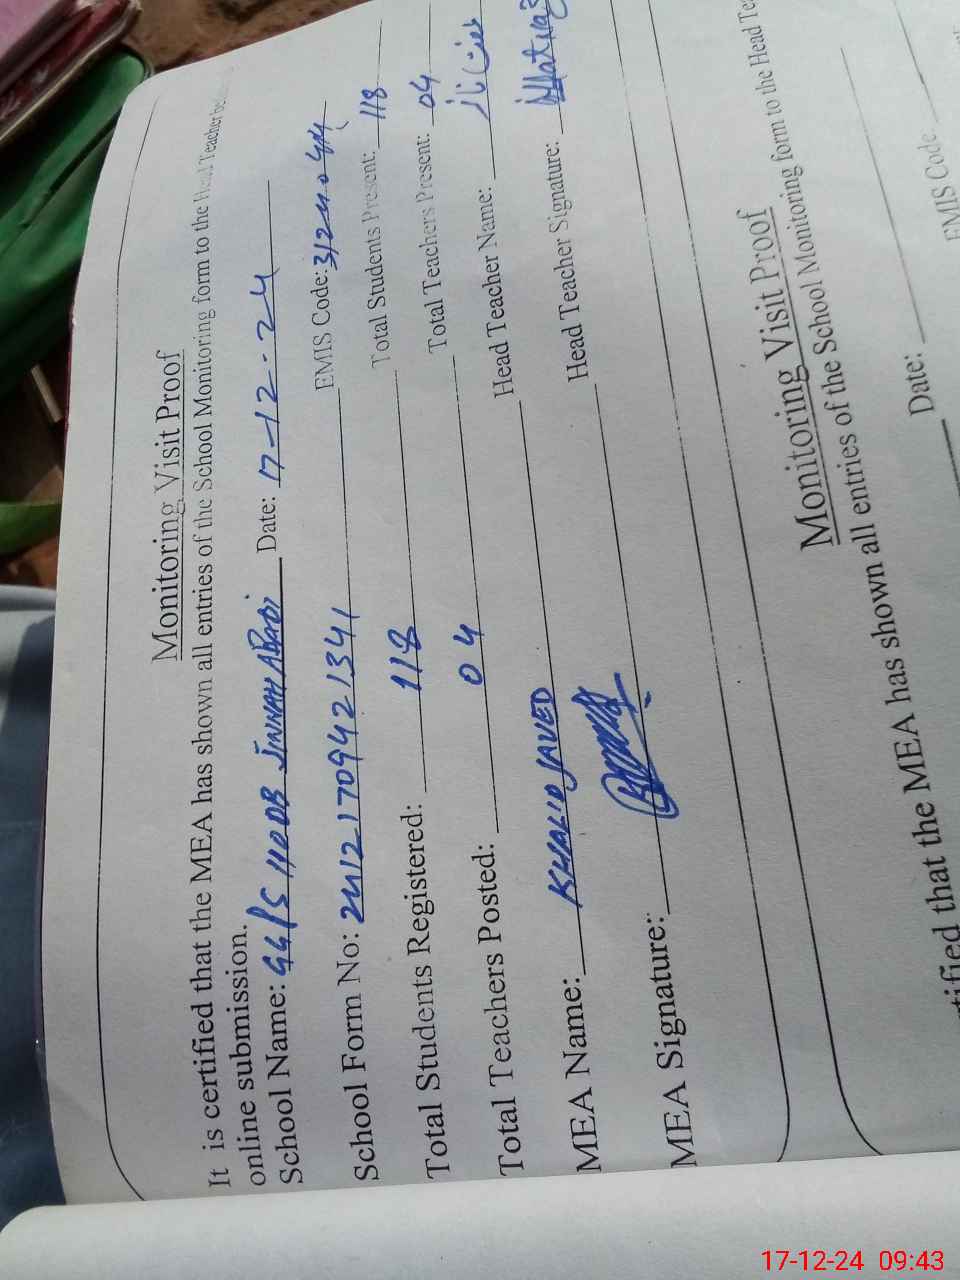 Monitoring Visit Proof
It is certified that the MEA has shown all entries of the School Monitoring form to the Head Teacher
online submission.
School Name: GG/S 110 DB JINNAH ABADI Date: 17-12-24
School Form No: 24121709421341 EMIS Code:
Total Students Registered: 118 Total Students Present: 118
Total Teachers Posted: 04 Total Teachers Present: 04
MEA Name: KHALID JAVED Head Teacher Name:
MEA Signature: Head Teacher Signature:
Monitoring Visit Proof
certified that the MEA has shown all entries of the School Monitoring form to the Head
Date: EMIS Code
17-12-24 09:43